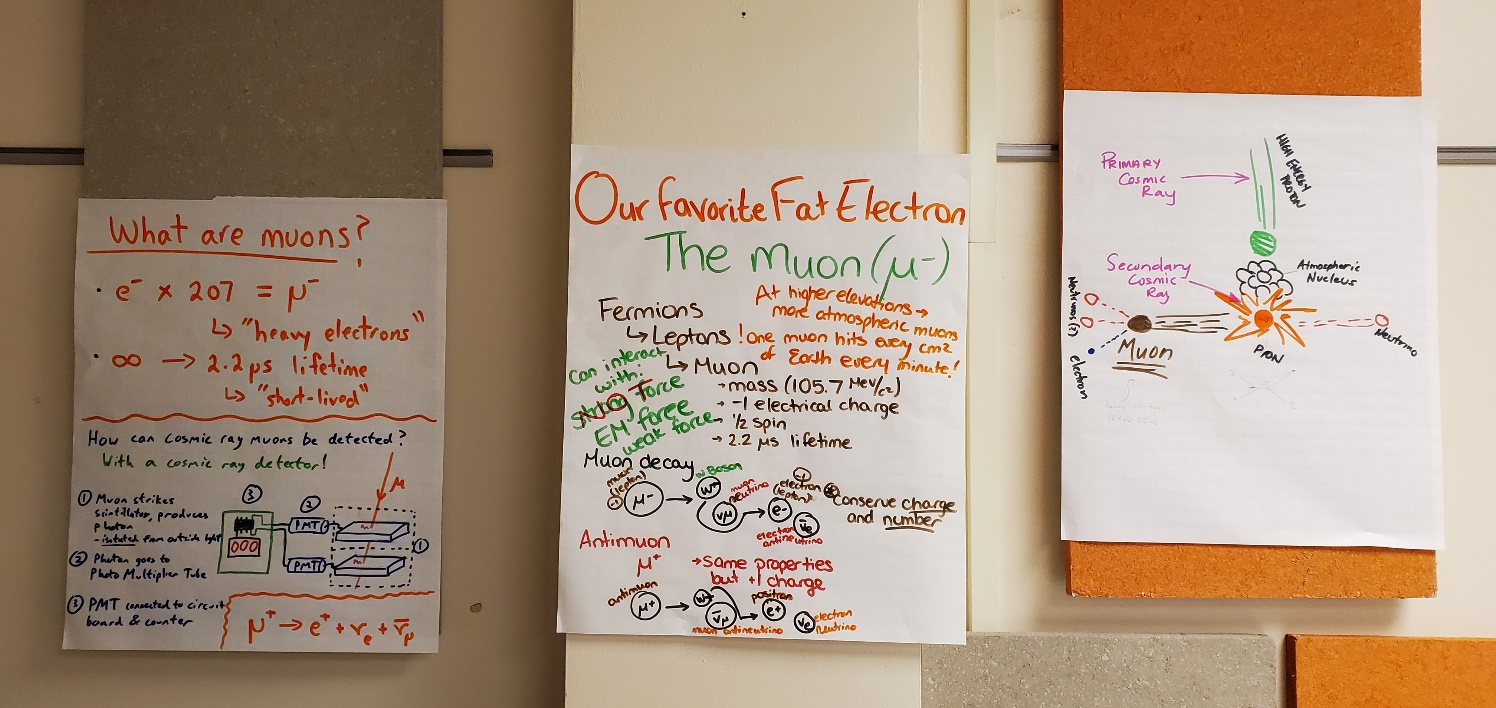 What are muons?
• e⁻ x 207 = μ⁻
↳ "heavy electrons"
• ∞ → 2.2 μs lifetime
↳ "short-lived"
How can cosmic ray muons be detected?
With a cosmic ray detector!
① Muon strikes
scintillator, produces
photon
- isolated from outside light
② Photon goes to
Photo Multiplier Tube
③ PMT connected to circuit
board & counter
③
②
μ
PMT
PMT
①
000
μ⁺ → e⁺ + νₑ + ν̅_μ
Our favorite Fat Electron
The Muon (μ-)
Fermions
↳ Leptons
↳ Muon
→ mass (105.7 MeV/c²)
→ -1 electrical charge
→ 1/2 spin
→ 2.2 μs lifetime
At higher elevations →
more atmospheric muons
! one muon hits every cm2
of Earth every minute!
Can interact
with:
strong force
EM force
weak force
Muon decay
muon
(lepton)
μ-
→
W Boson
W-
muon
neutrino
νμ
→
electron
(lepton)
e-
ν̅e
electron
antineutrino
Conserve charge
and number
Antimuon
μ+
→ same properties
but +1 charge
antimuon
μ+
→
W+
ν̅μ
muon antineutrino
→
positron
e+
νe
electron
neutrino
PRIMARY
COSMIC
RAY
HIGH ENERGY
PROTON
Secondary
Cosmic
Ray
Atmospheric
Nucleus
Neutrinos (2)
electron
Muon
PION
Neutrino